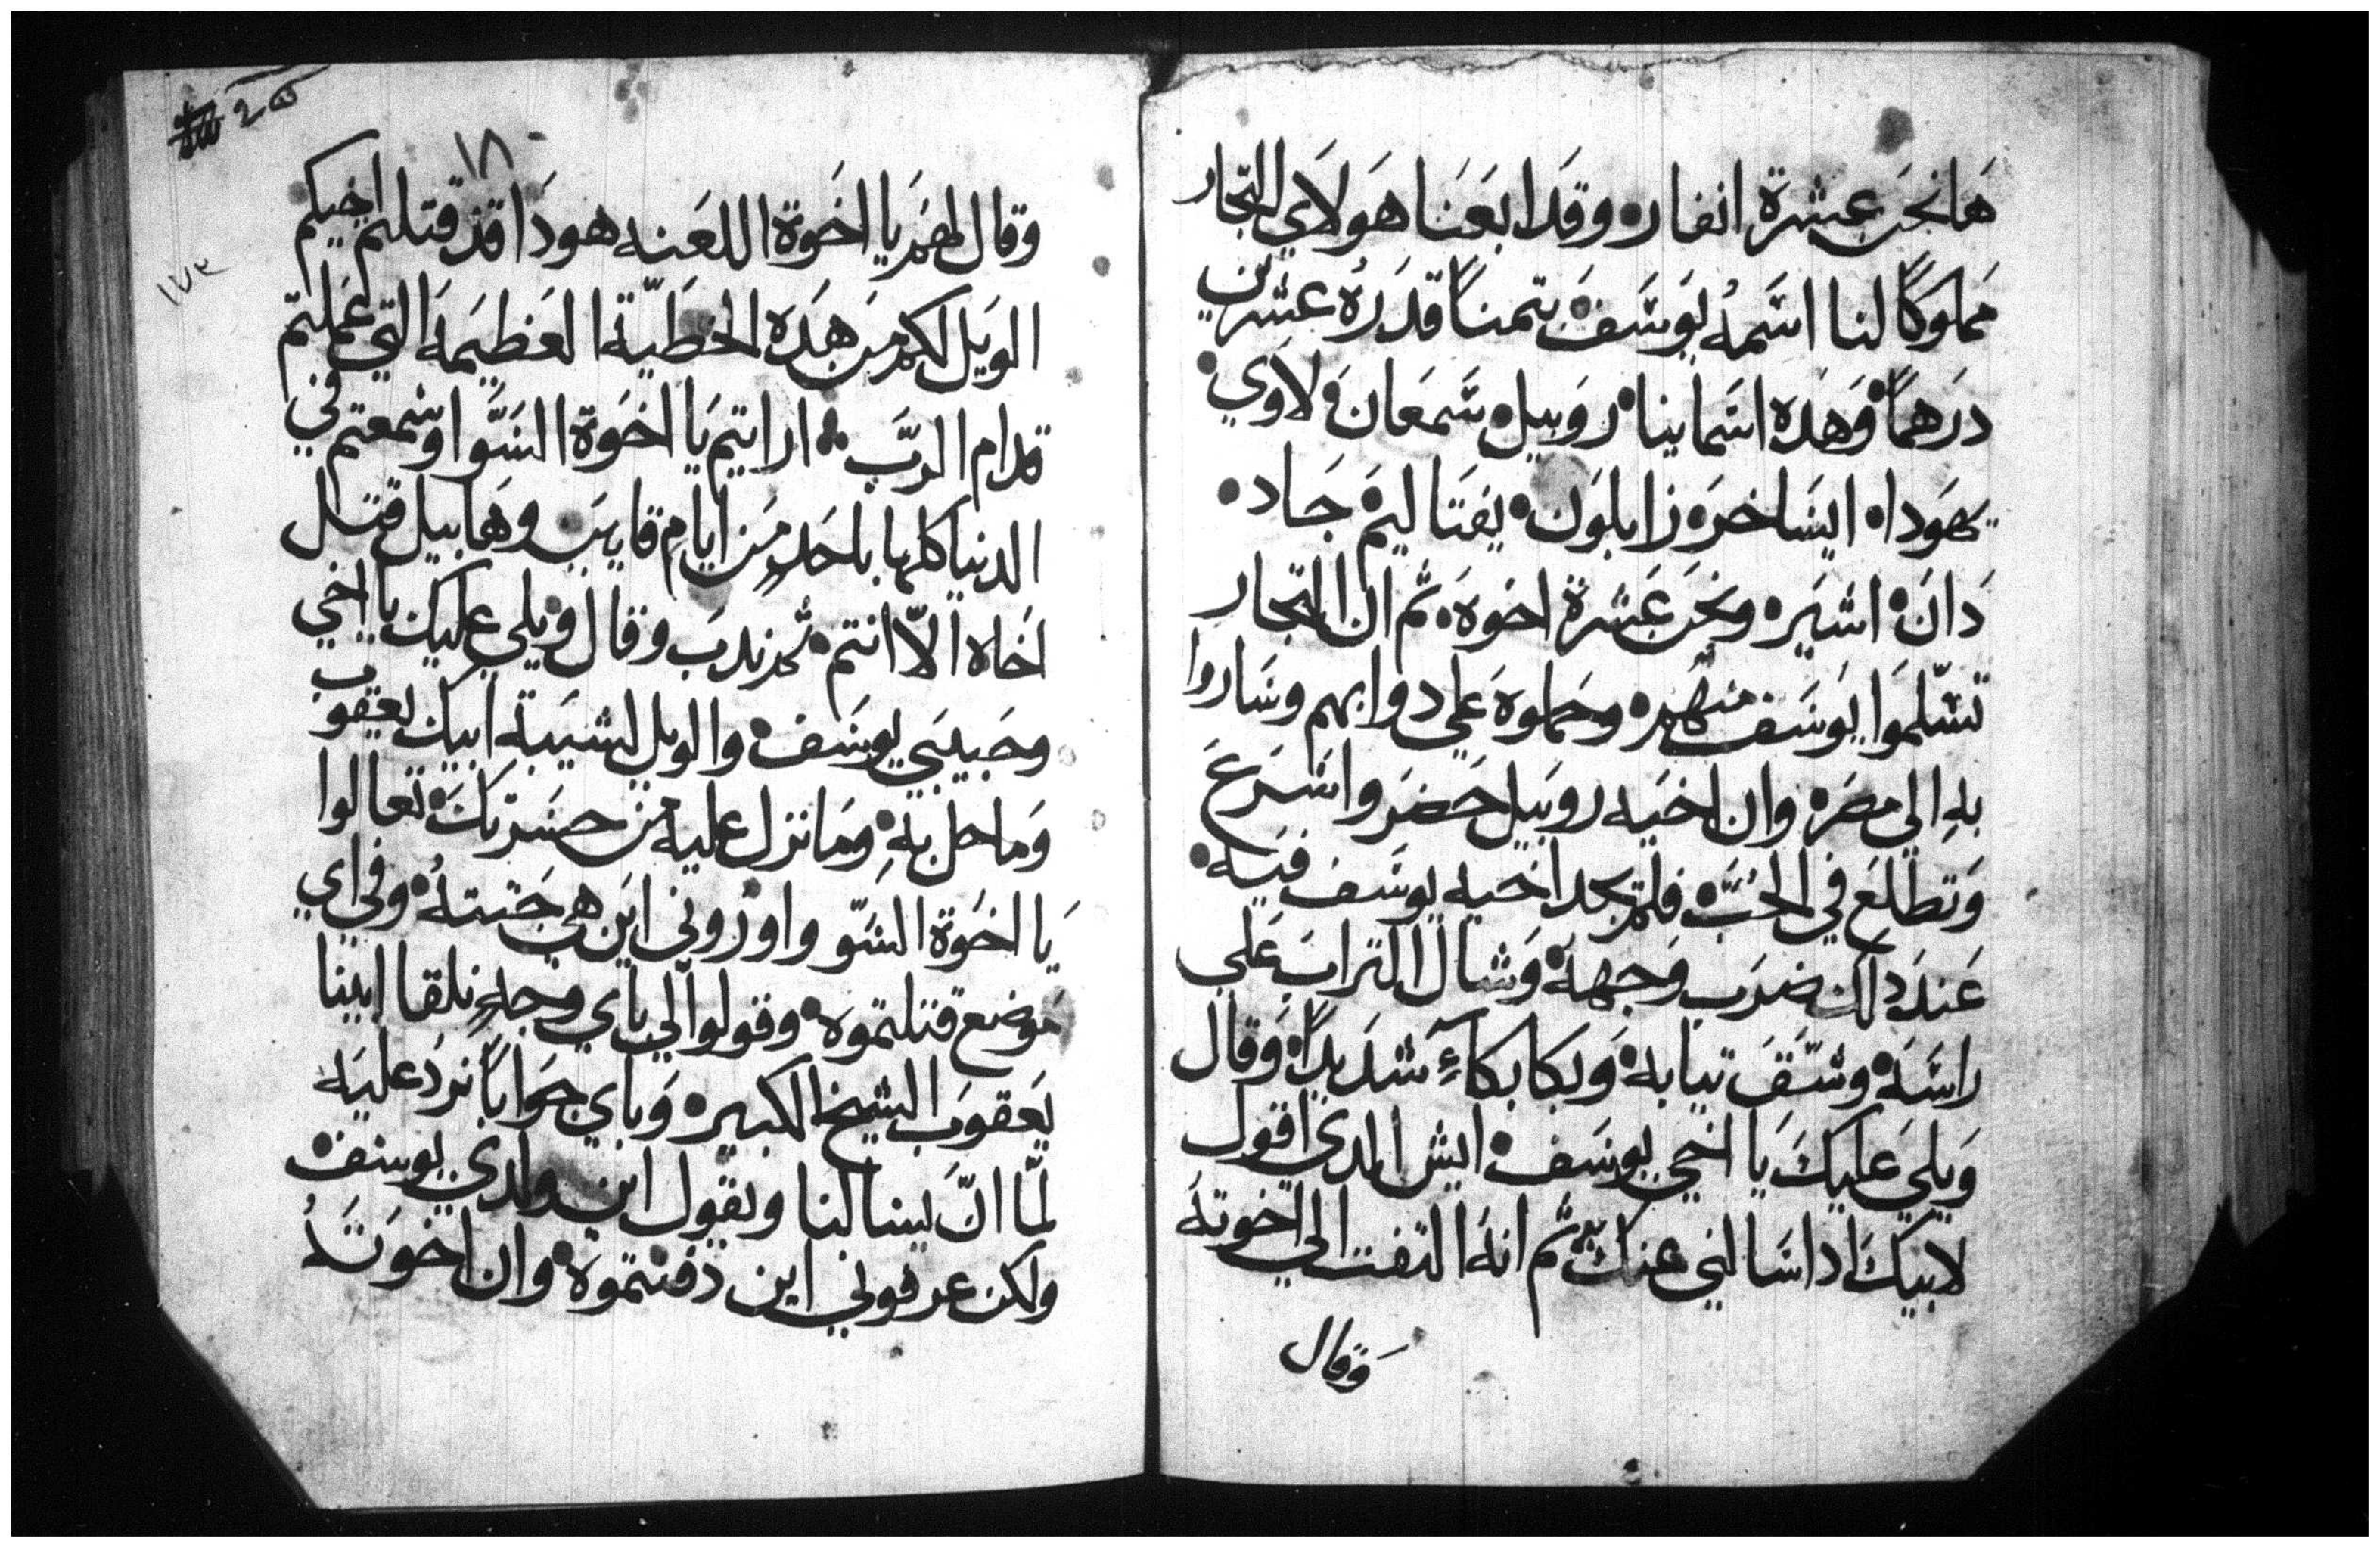 هَانحَن عَشرة انفار• وقَد ابعَنَا هَولاي التجار
مَملوكًا لنا اسَمهُ يَوسَفَ• بتمناً قدَرهُ عشرين
درَهماً• وَهَده اسَماينا• روَبيل• سَمعَانَ• لاَوي•
يهَودا• ايسَاخرَ• زابلوَن• يفتَاليَم• جَاد•
دَانَ• اشيَر• ونحَن عَشرة اخوَه• ثم ان التجار
تسَّلموَا يَوسَف منهَم• وحَملوهَ علي دوابهم وسَاروا
بهِ الي مصَر• وان اخيَه روَبيل حَضرَ واسَرعَ
وَتطلعَ في الجُبّ• فلم يجد اخيه يوسَف فيَه•
عَندَ دلك ضرَب وَجههَ• وَشال التراب عَلي
راسَهَ• وشقَّقَ تيابهَ• وَبكا بكاءً شدَيداً• وَقال
وَيلي عَليكَ يَا اخي يوسَف• ايش الدي اقول
لابيكَ اداسَالني عنك• ثم انهَ التفت الي اخوتهَ
وَقال
١٨
١٧٢
وقال لهَم يَا اخَوة اللعَنه هودَا قد قتلتم اخيكم
الوَيل لكم مَن هَده الخطيّة العَظيمَهَ التي عَملتم
قدام الرَبَّ• ارايتم يَا اخَوة السَّو اوسَمعتم في
الدنيا كلها باحَد مَن ايام قاييَن وهَابيل قتل
اخَاه الاّ انتم• ثم ندبَ وقال ويلي عليك يا اخي
وحَبيبَي يوسَف• والويل لشيبة ابيك يعقوب
وَماحل بهِ• ومَا نزل عليه من حسَرتكَ• تعالوا
يَا اخوَة السَوّ واورُوني اين هي جَتتهُ• وفي اي
مَوضع قتلتموه• وقولوا لي باي وجهٍ نلقا ابينا
يَعقوَب الشيخ الكبير• وَباي جوَاباً نردَ عليَه
لمّا انّ يسالنا ويقول اين ولدي يوسف•
ولكن عرفوني اين دفنتموهَ• وان اخوَتَهُ